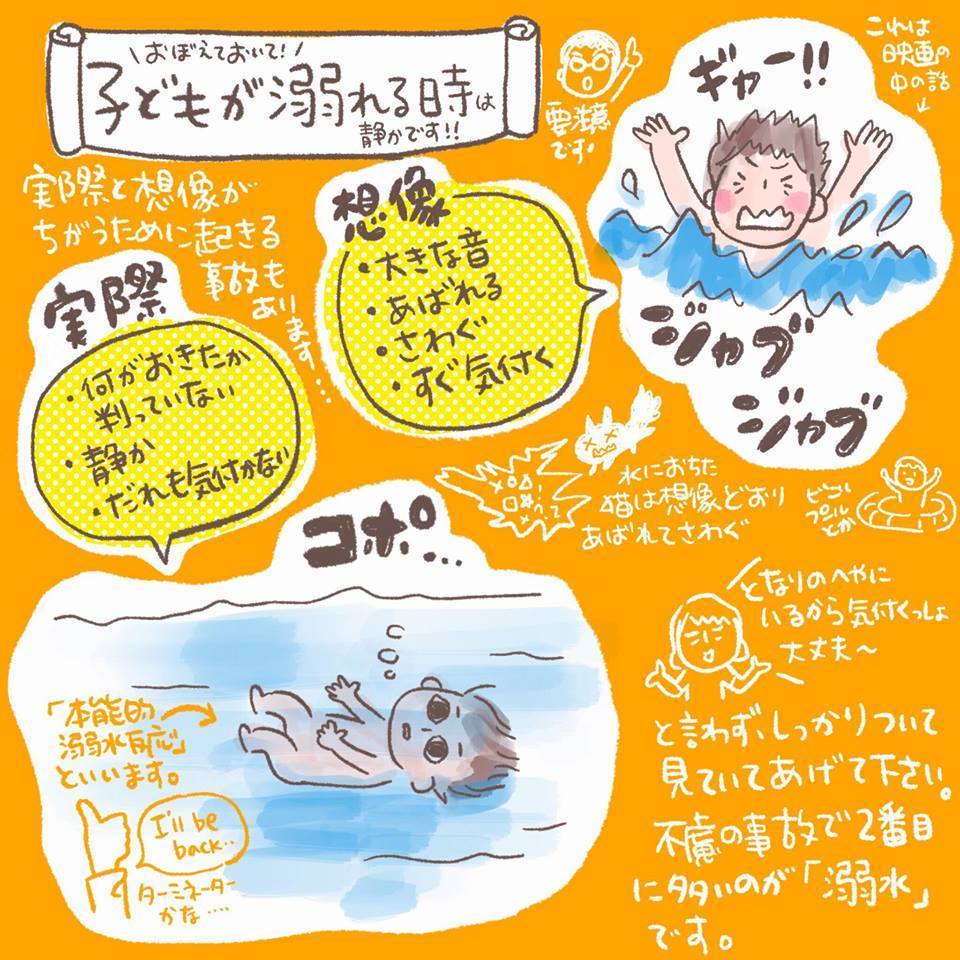 \おぼえておいて!/
子どもが溺れる時は
静かです!!
要注意
です。
ギャー!!
これは
映画の
中の話
実際と想像が
ちがうために起きる
事故も
あります…
想像
・大きな音
・あばれる
・さわぐ
・すぐ気付く
ジャブ
ジャブ
実際
・何がおきたか
判っていない
・静か
・だれも気付かない
水におちた
猫は想像どおり
あばれてさわぐ
プール
とか
コポ…
となりのへやに
いるから気付くっしょ
大丈夫~
「本能的
溺水反応」
といいます。
I'll be
back..
ターミネーター
かな…
と言わず、しっかりついて
見ていてあげて下さい。
不慮の事故で2番目
に多いのが「溺水」
です。